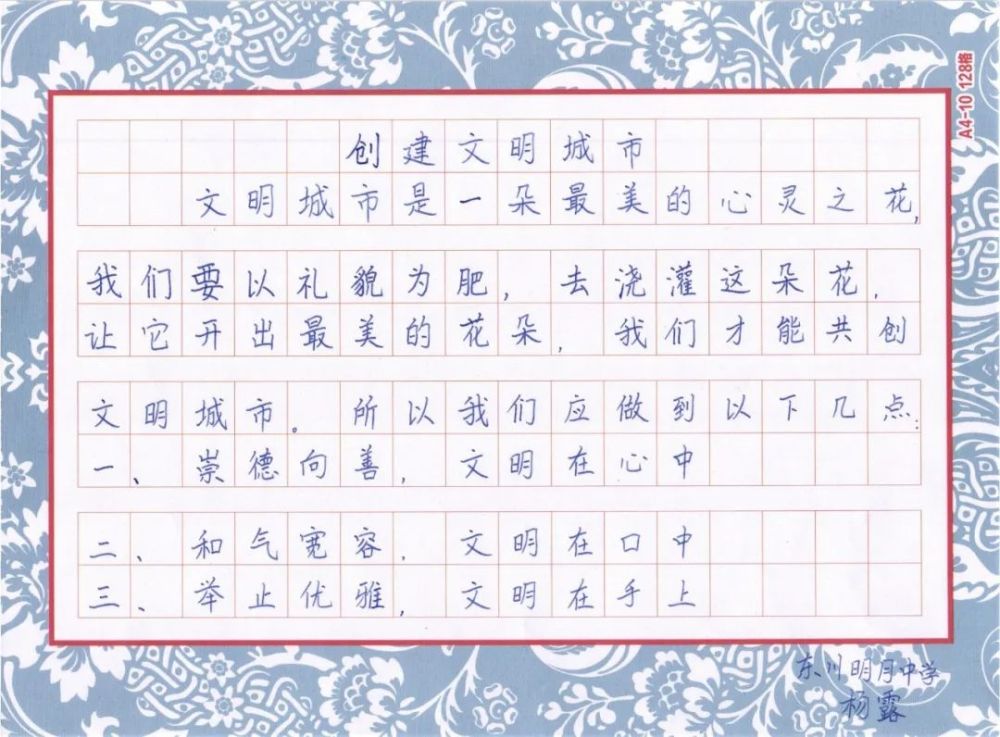 A4-10 128格
创建文明城市
文明城市是一朵最美的心灵之花,
我们要以礼貌为肥,去浇灌这朵花,
让它开出最美的花朵,我们才能共创
文明城市。所以我们应做到以下几点:
一、崇德向善,文明在心中
二、和气宽容,文明在口中
三、举止优雅,文明在手上
东川明月中学
杨露